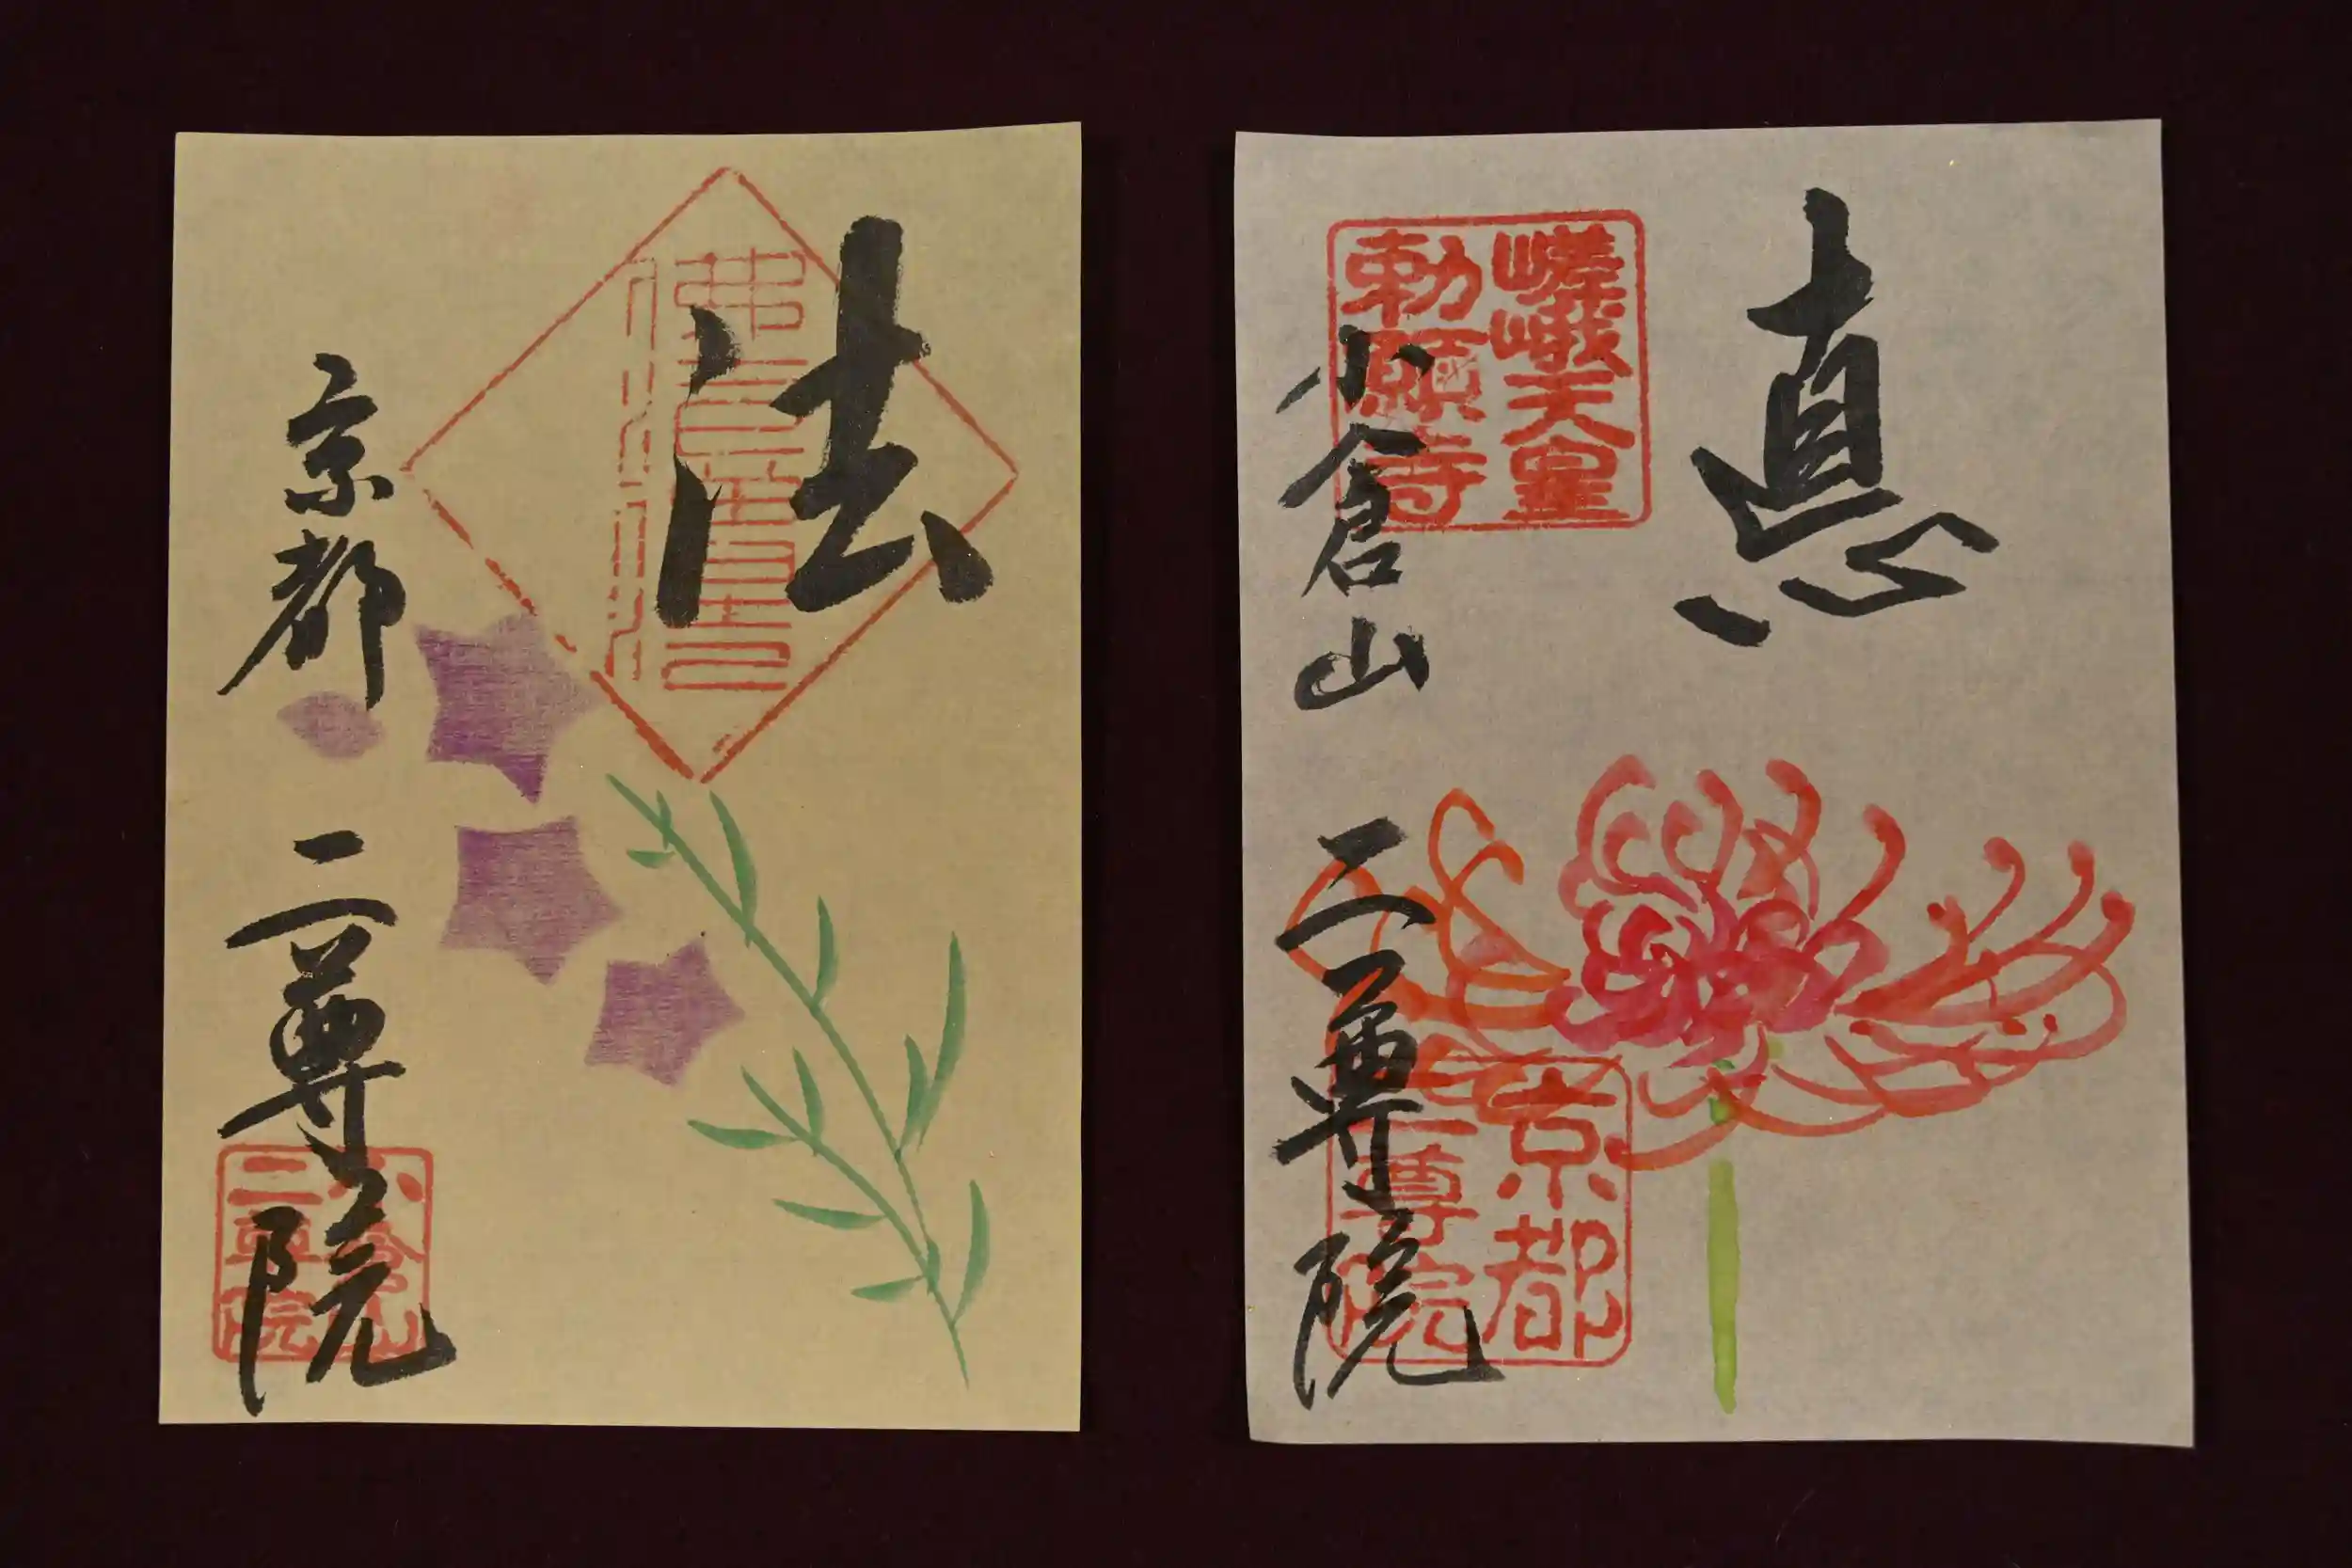 法
京都 二尊院
小倉山
二尊院
悳
嵯峨天皇
勅願寺
小倉山 二尊院
京都
二尊院